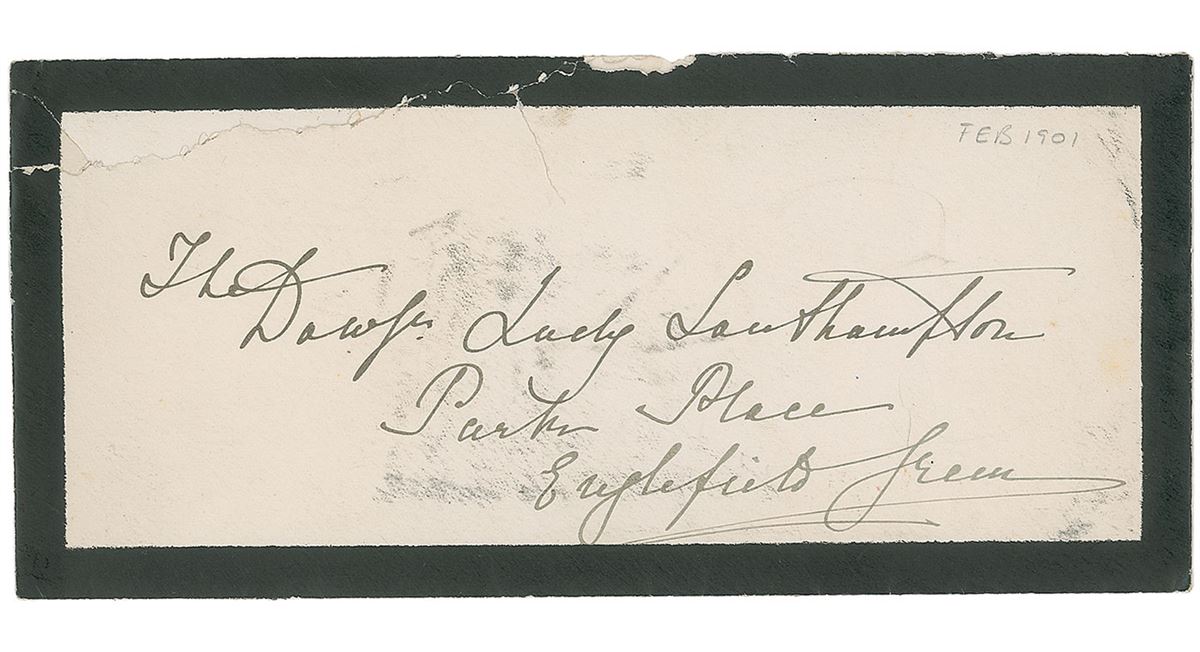 FEB 1901
The
Dowgr. Lady Southampton
Park Place
Englefield Green